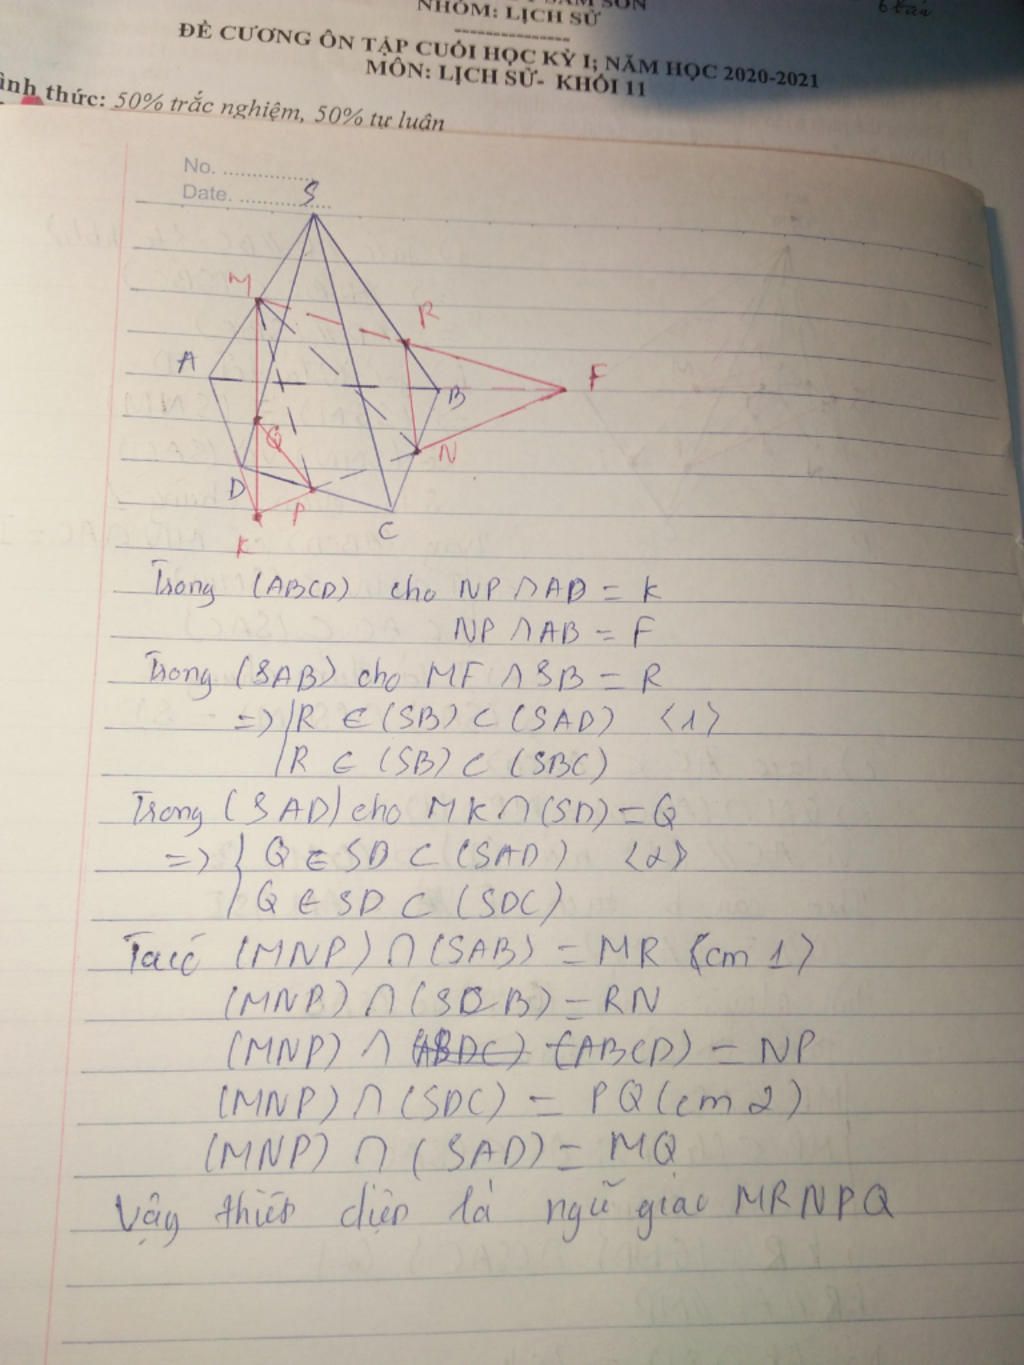 SẦM SƠN
NHÓM: LỊCH SỬ
ĐỀ CƯƠNG ÔN TẬP CUỐI HỌC KỲ I; NĂM HỌC 2020-2021
MÔN: LỊCH SỬ- KHỐI 11
ình thức: 50% trắc nghiệm, 50% tự luận
No. ................
Date. ................
S
M
R
A
B
F
Q
N
D
P
C
K
Trong (ABCD) cho NP ∩ AD = K
NP ∩ AB = F
Trong (SAB) cho MF ∩ SB = R
=> R ∈ (SB) ⊂ (SAD) <1>
R ∈ (SB) ⊂ (SBC)
Trong (SAD) cho MK ∩ (SD) = Q
=> { Q ∈ SD ⊂ (SAD) <2>
Q ∈ SD ⊂ (SDC)
Ta có (MNP) ∩ (SAB) = MR (cm 1)
(MNP) ∩ (SCB) = RN
(MNP) ∩ (ABCD) = NP
(MNP) ∩ (SDC) = PQ (cm 2)
(MNP) ∩ (SAD) = MQ
Vậy thiết diện là ngũ giác MRNPQ